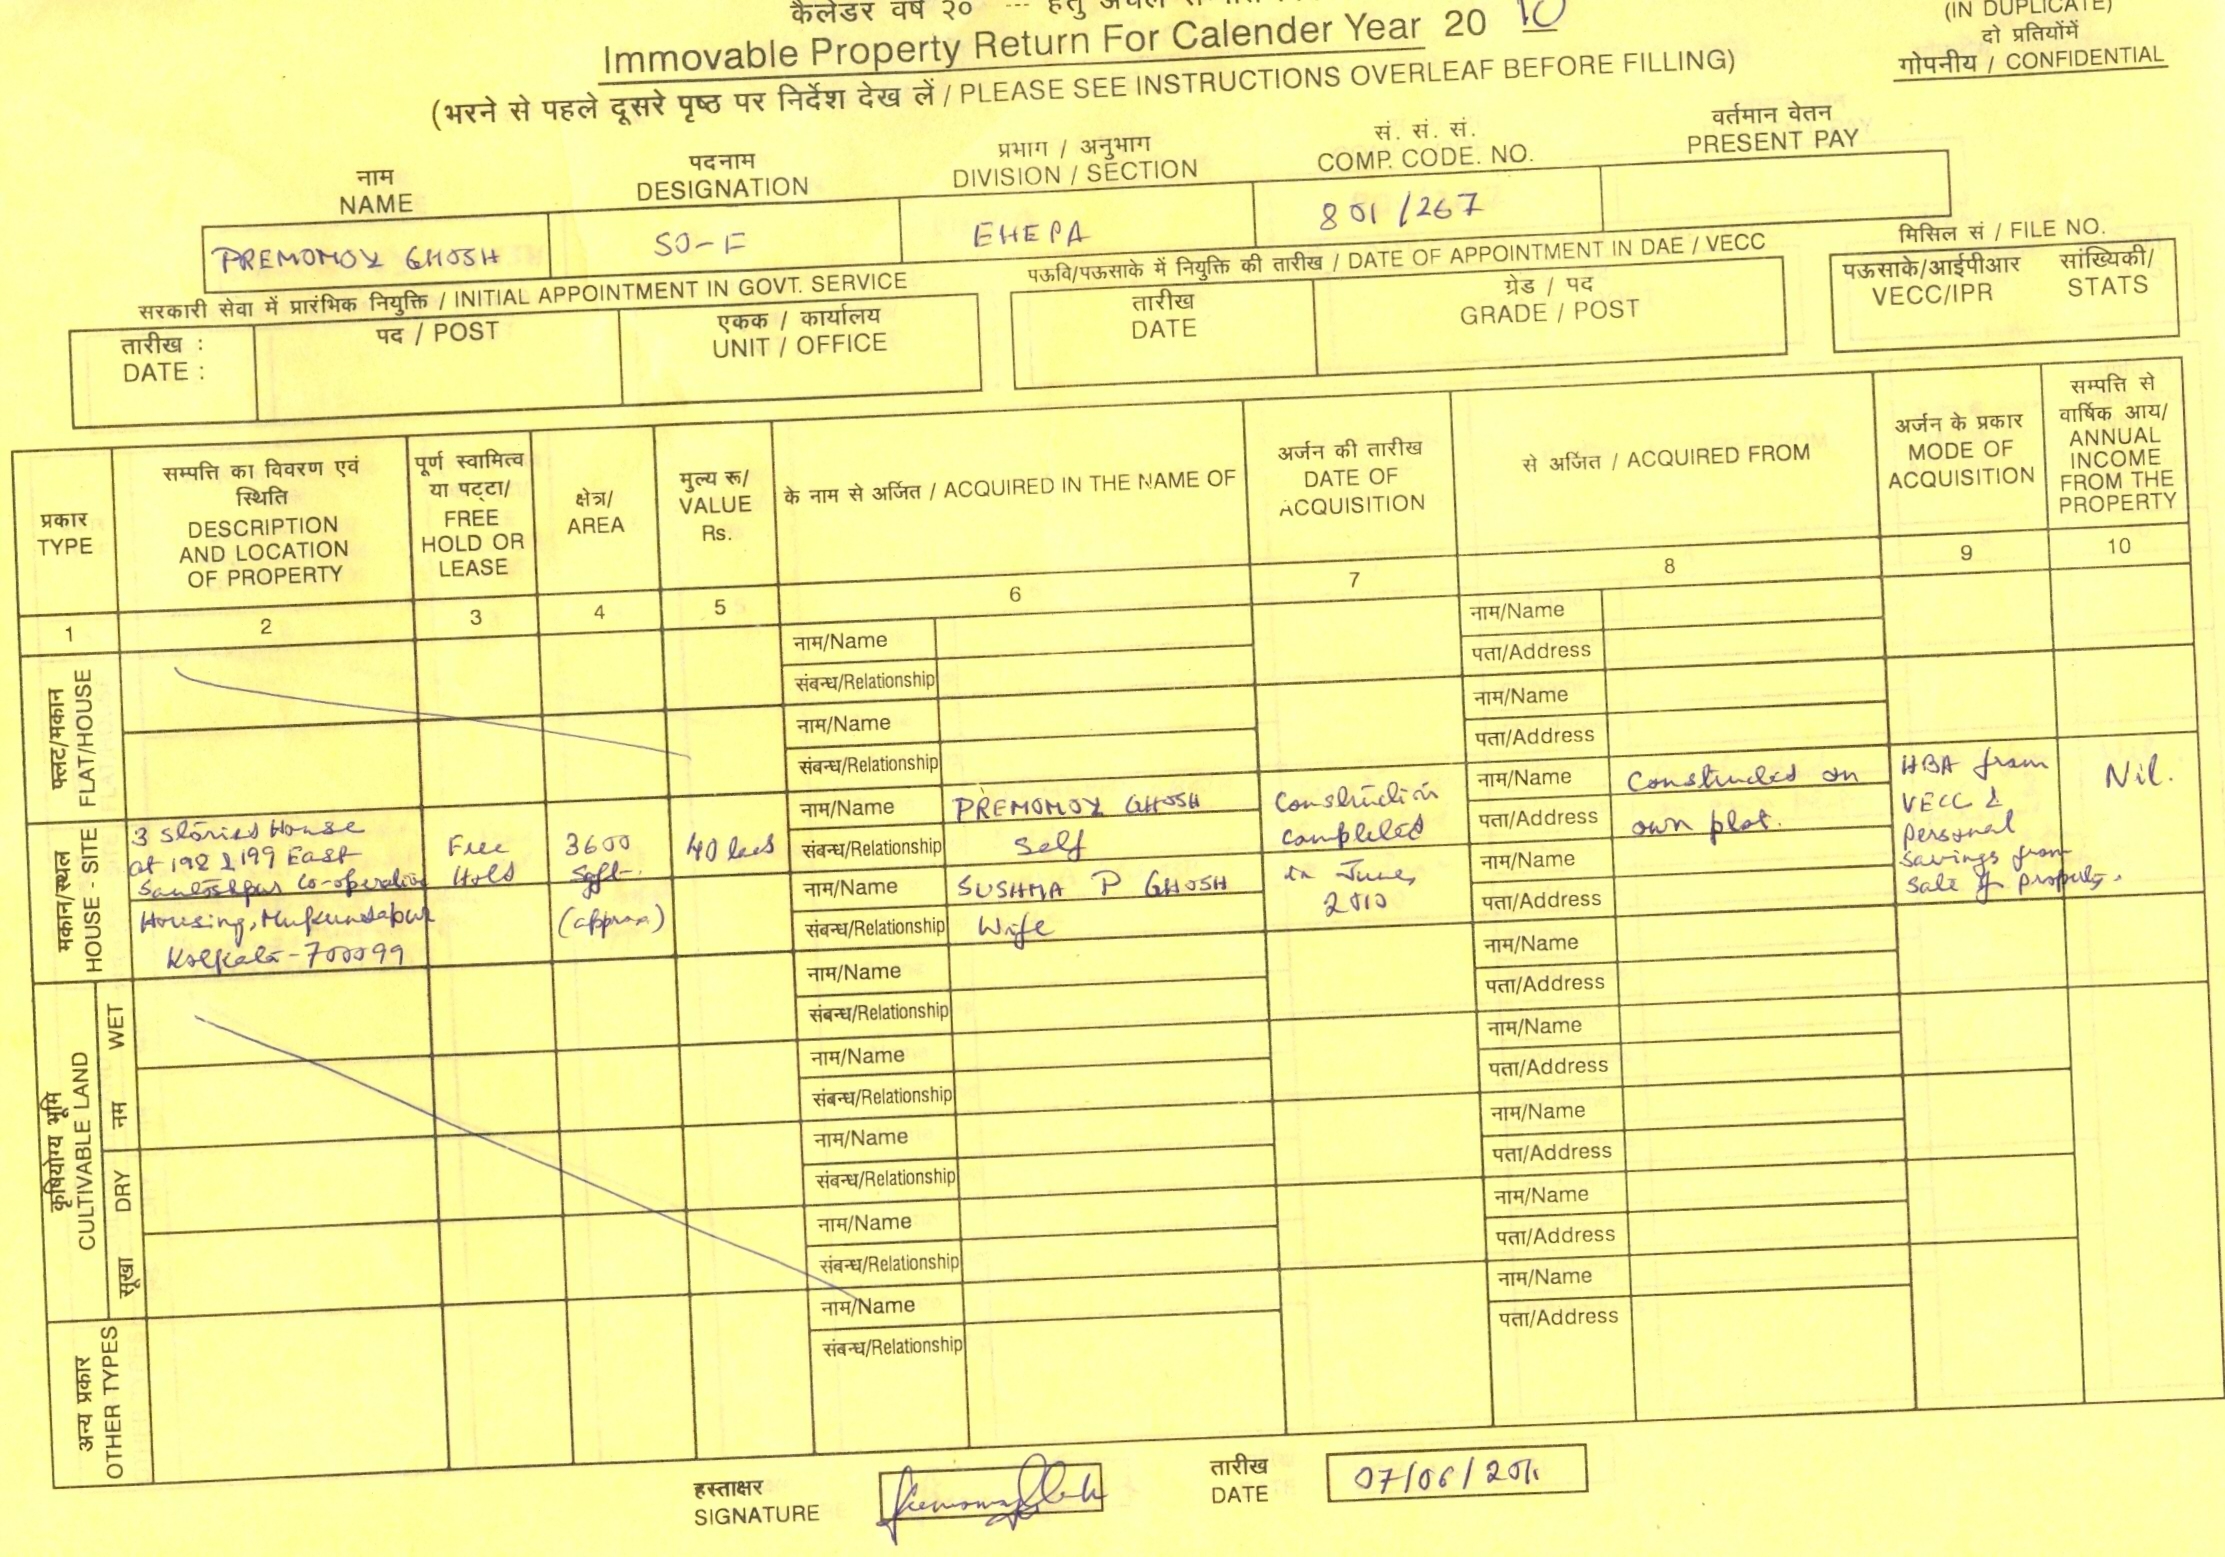 Immovable Property Return For Calender Year 20 10
(IN DUPLICATE)
दो प्रतियोंमें
गोपनीय / CONFIDENTIAL
(भरने से पहले दूसरे पृष्ठ पर निर्देश देख लें / PLEASE SEE INSTRUCTIONS OVERLEAF BEFORE FILLING)
नाम
NAME
पदनाम
DESIGNATION
प्रभाग / अनुभाग
DIVISION / SECTION
सं. सं. सं.
COMP. CODE. NO.
वर्तमान वेतन
PRESENT PAY
PREMOMOY GHOSH
SO-F
EHEPA
801/267
सरकारी सेवा में प्रारंभिक नियुक्ति / INITIAL APPOINTMENT IN GOVT. SERVICE
पऊवि/पऊसाके में नियुक्ति की तारीख / DATE OF APPOINTMENT IN DAE / VECC
मिसिल सं / FILE NO.
तारीख :
DATE :
पद / POST
एकक / कार्यालय
UNIT / OFFICE
तारीख
DATE
ग्रेड / पद
GRADE / POST
पऊसाके/आईपीआर
VECC/IPR
सांख्यिकी/
STATS
प्रकार
TYPE
सम्पत्ति का विवरण एवं
स्थिति
DESCRIPTION
AND LOCATION
OF PROPERTY
पूर्ण स्वामित्व
या पट्टा/
FREE
HOLD OR
LEASE
क्षेत्र/
AREA
मुल्य रू/
VALUE
Rs.
के नाम से अर्जित / ACQUIRED IN THE NAME OF
अर्जन की तारीख
DATE OF
ACQUISITION
से अर्जित / ACQUIRED FROM
अर्जन के प्रकार
MODE OF
ACQUISITION
सम्पत्ति से
वार्षिक आय/
ANNUAL
INCOME
FROM THE
PROPERTY
1
2
3
4
5
6
7
8
9
10
फ्लट/मकान
FLAT/HOUSE
नाम/Name
संबन्ध/Relationship
नाम/Name
संबन्ध/Relationship
नाम/Name
पता/Address
नाम/Name
पता/Address
मकान/स्थल
HOUSE - SITE
3 storied House
at 198 & 199 East
Santoshpur Co-operative
Housing, Mukundapur
Kolkata-700099
Free
Hold
3600
sqft.
(approx)
40 lacs
नाम/Name PREMOMOY GHOSH
संबन्ध/Relationship Self
नाम/Name SUSHMA P GHOSH
संबन्ध/Relationship Wife
Construction
completed
in June,
2010
नाम/Name Constructed on
पता/Address own plot.
नाम/Name
पता/Address
HBA from
VECC &
personal
savings from
sale of property.
Nil.
कृषियोग्य भूमि
CULTIVABLE LAND
नम WET
सूखा DRY
नाम/Name
संबन्ध/Relationship
नाम/Name
संबन्ध/Relationship
नाम/Name
संबन्ध/Relationship
नाम/Name
संबन्ध/Relationship
नाम/Name
पता/Address
नाम/Name
पता/Address
नाम/Name
पता/Address
नाम/Name
पता/Address
अन्य प्रकार
OTHER TYPES
नाम/Name
संबन्ध/Relationship
नाम/Name
पता/Address
हस्ताक्षर
SIGNATURE
तारीख
DATE
07/06/2011